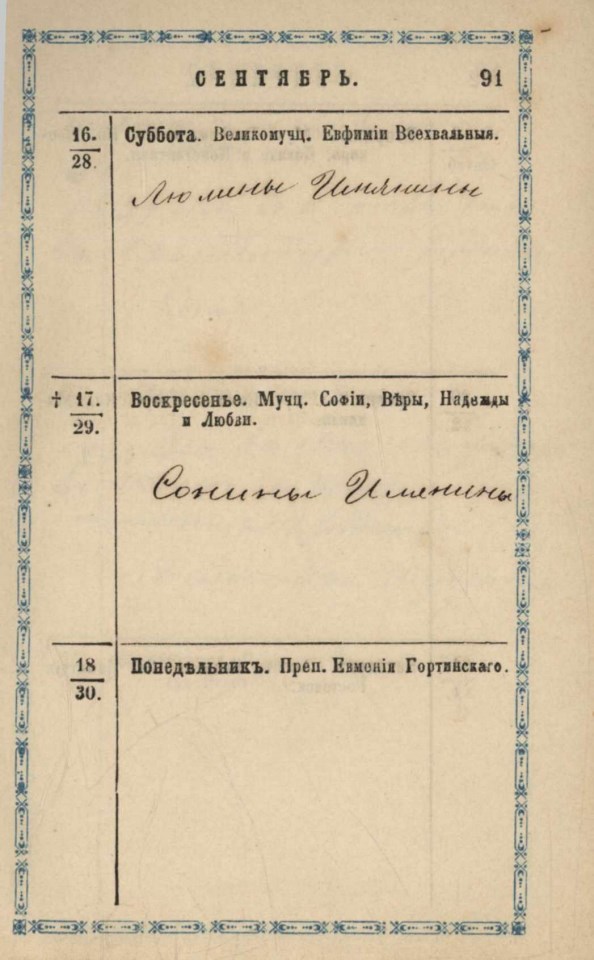 СЕНТЯБРЬ. 91
16.
28.
Суббота. Великомучц. Евфиміи Всехвальныя.
Люмины Имянины
† 17.
29.
Воскресенье. Мучц. Софіи, Вѣры, Надежды
и Любви.
Сонины Имянины
18
30.
Понедѣльникъ. Преп. Евменія Гортинскаго.